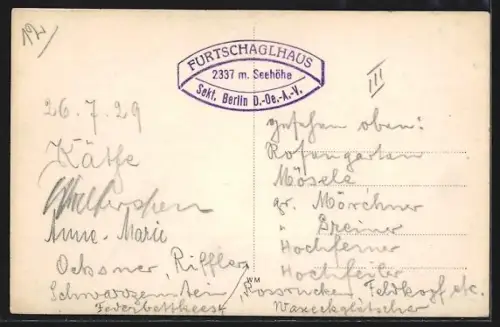 FURTSCHAGLHAUS
2337 m. Seehöhe
Sekt. Berlin D.-Oe.-A.-V.
III
26.7.29
Käthe
Anna-Marie
Ochsner, Riffler
Schwarzenstein
gesehen oben:
Rosengarten
Mösele
gr. Mörchner
" Greiner
Hochferner
Hochfeiler
Rossrucken, Feldkopf etc.
Waxeckgletscher